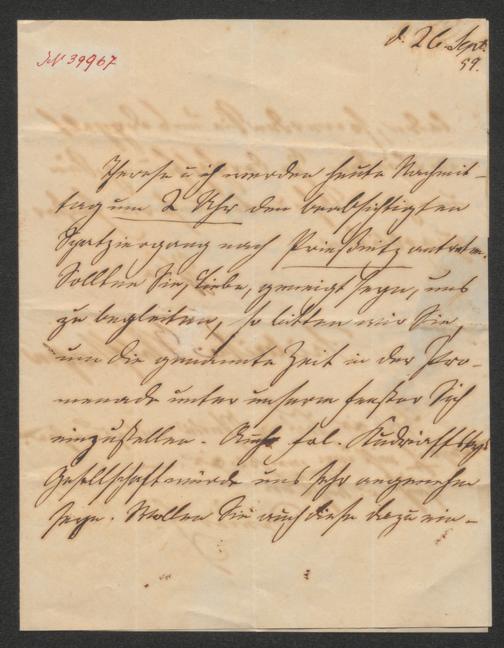 d. 26. Sept.
59.
IN 39967
Therese u ich werden heute Nachmit-
tag um 2 Uhr den beabsichtigten
Spatziergang nach Prießnitz antreten.
Sollten Sie, Liebe, geneigt seyn, uns
zu begleiten, so bitten wir Sie,
um die genannte Zeit in der Pro-
menade unter unserm Fenster Sich
einzustellen. Auch Frl.
Gesellschaft würde uns sehr angenehm
seyn. Wollen Sie auch diese dazu ein-